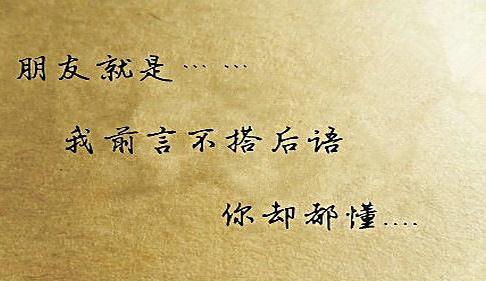 朋友就是……
我前言不搭后语
你却都懂....